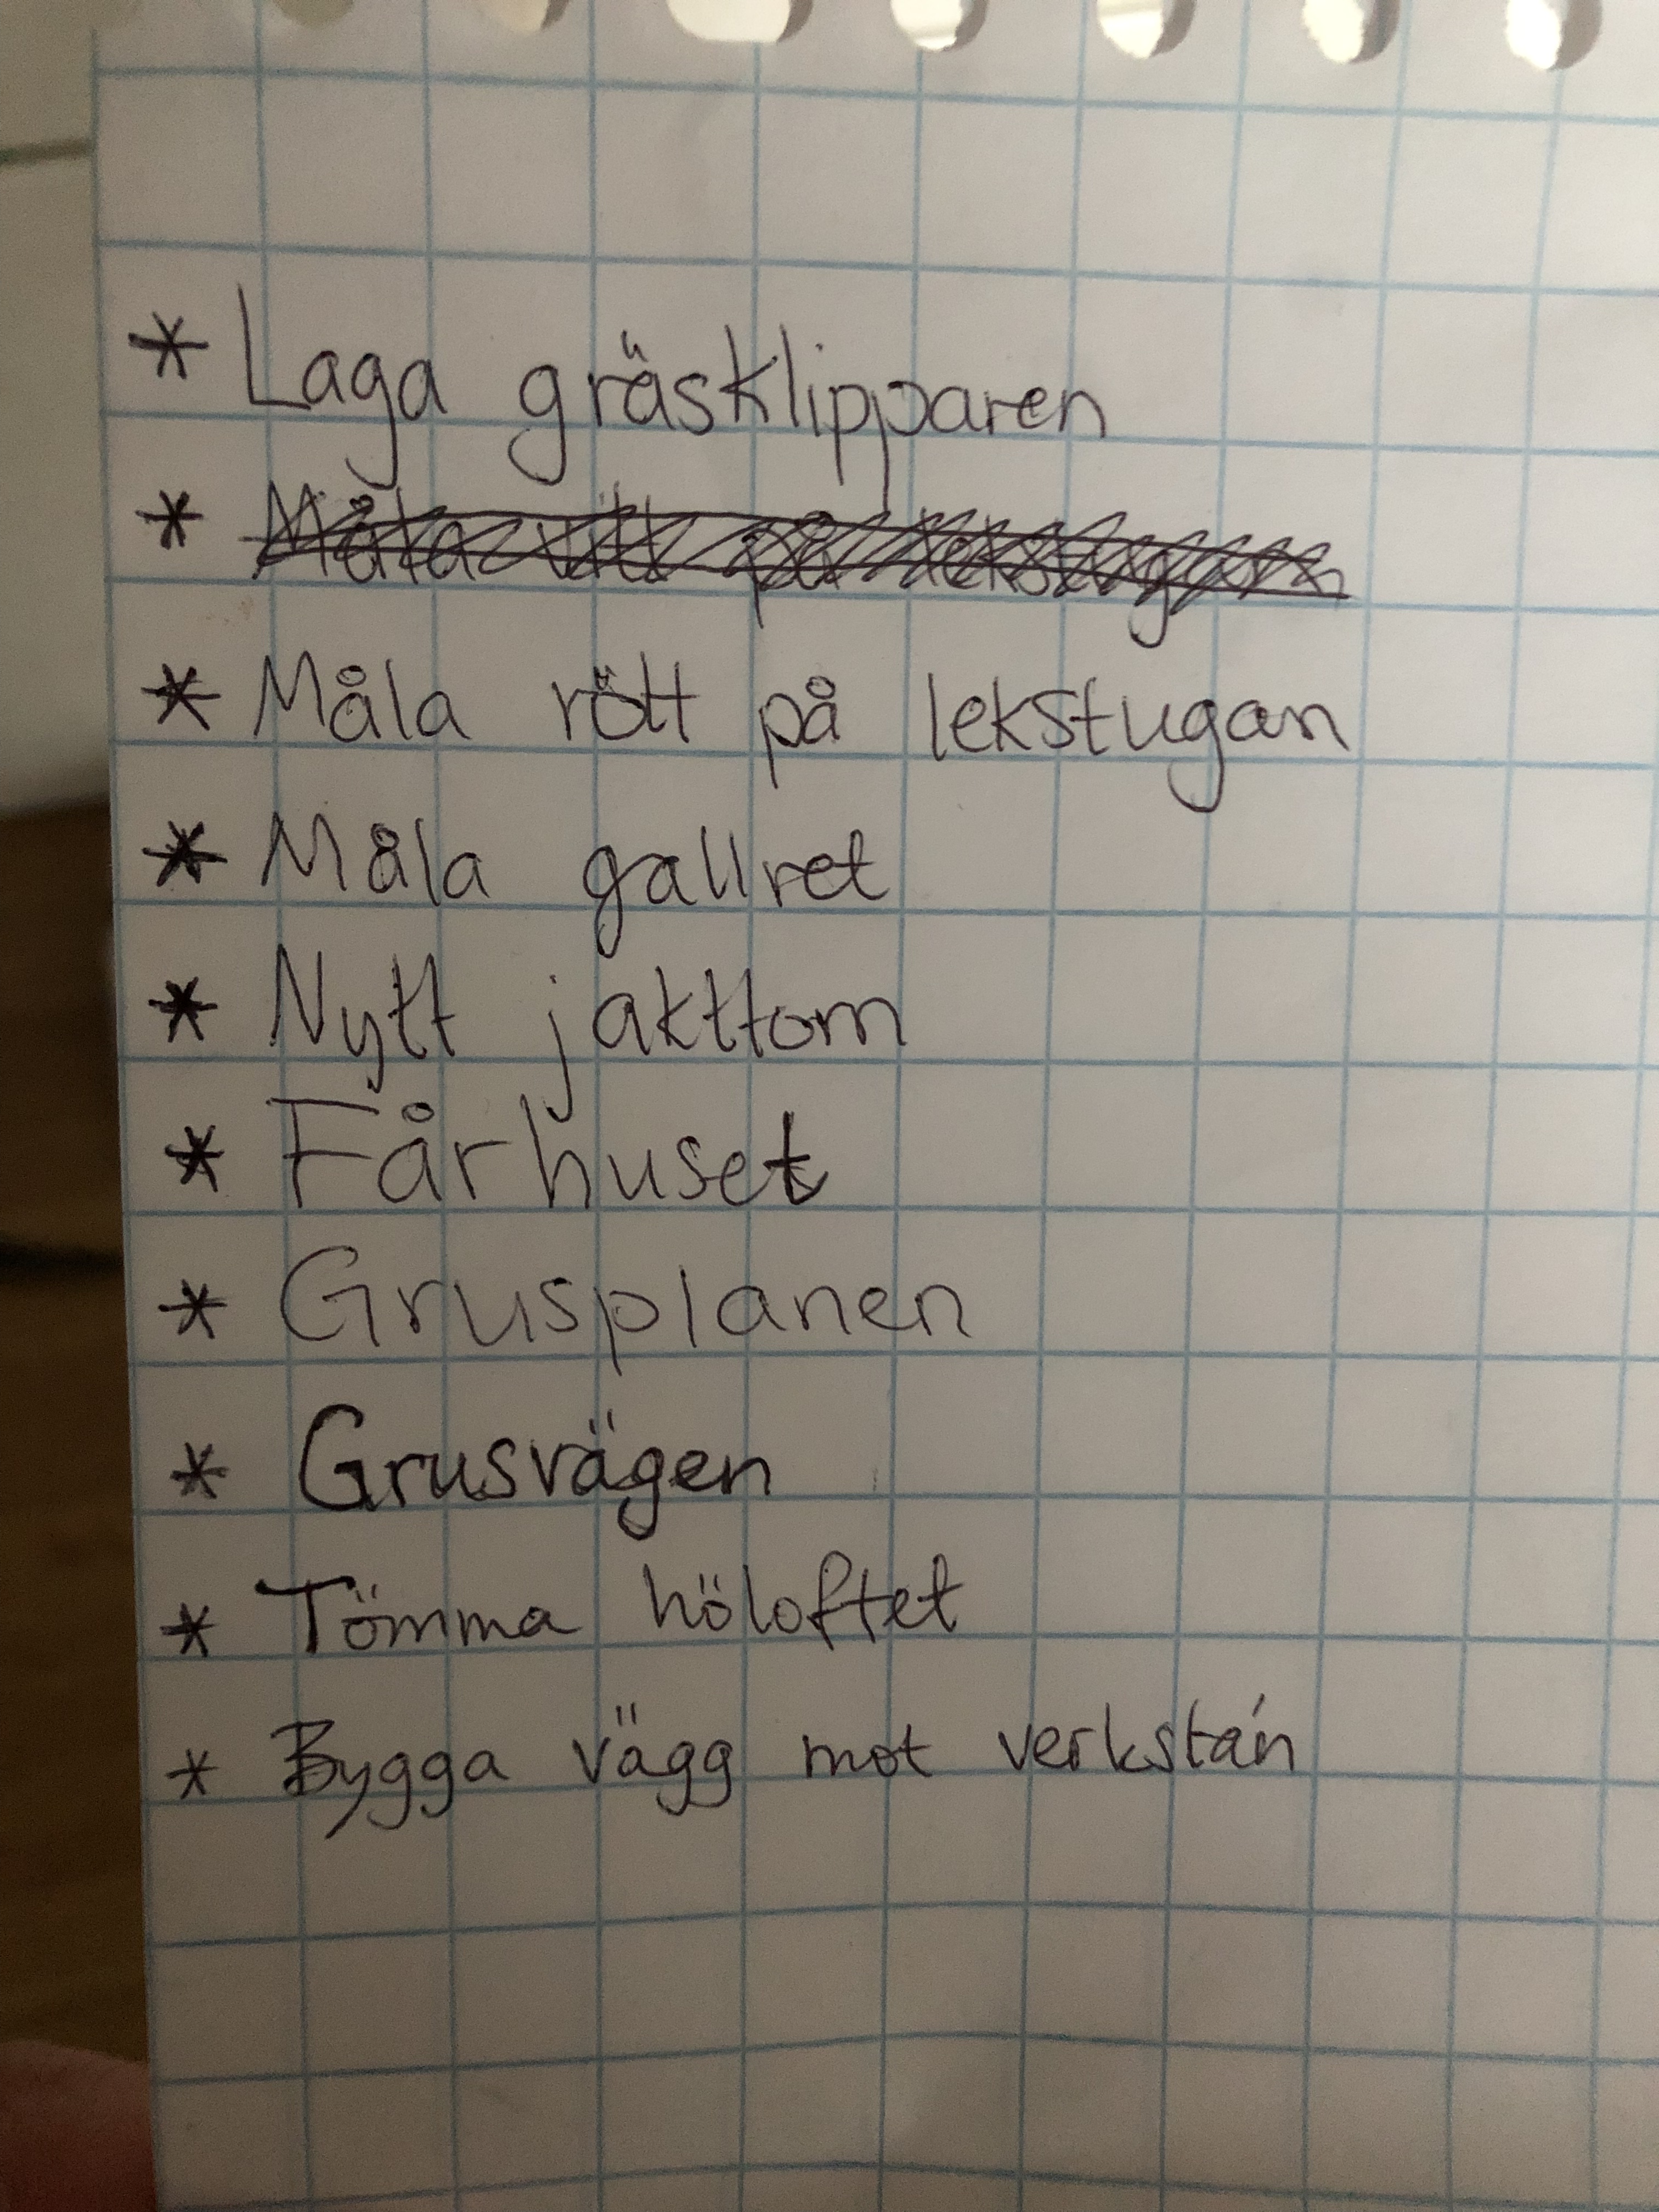 * Laga gräsklipparen
* Måla vitt på lekstugan
* Måla rött på lekstugan
* Måla gallret
* Nytt jakttorn
* Fårhuset
* Grusplanen
* Grusvägen
* Tömma höloftet
* Bygga vägg mot verkstán